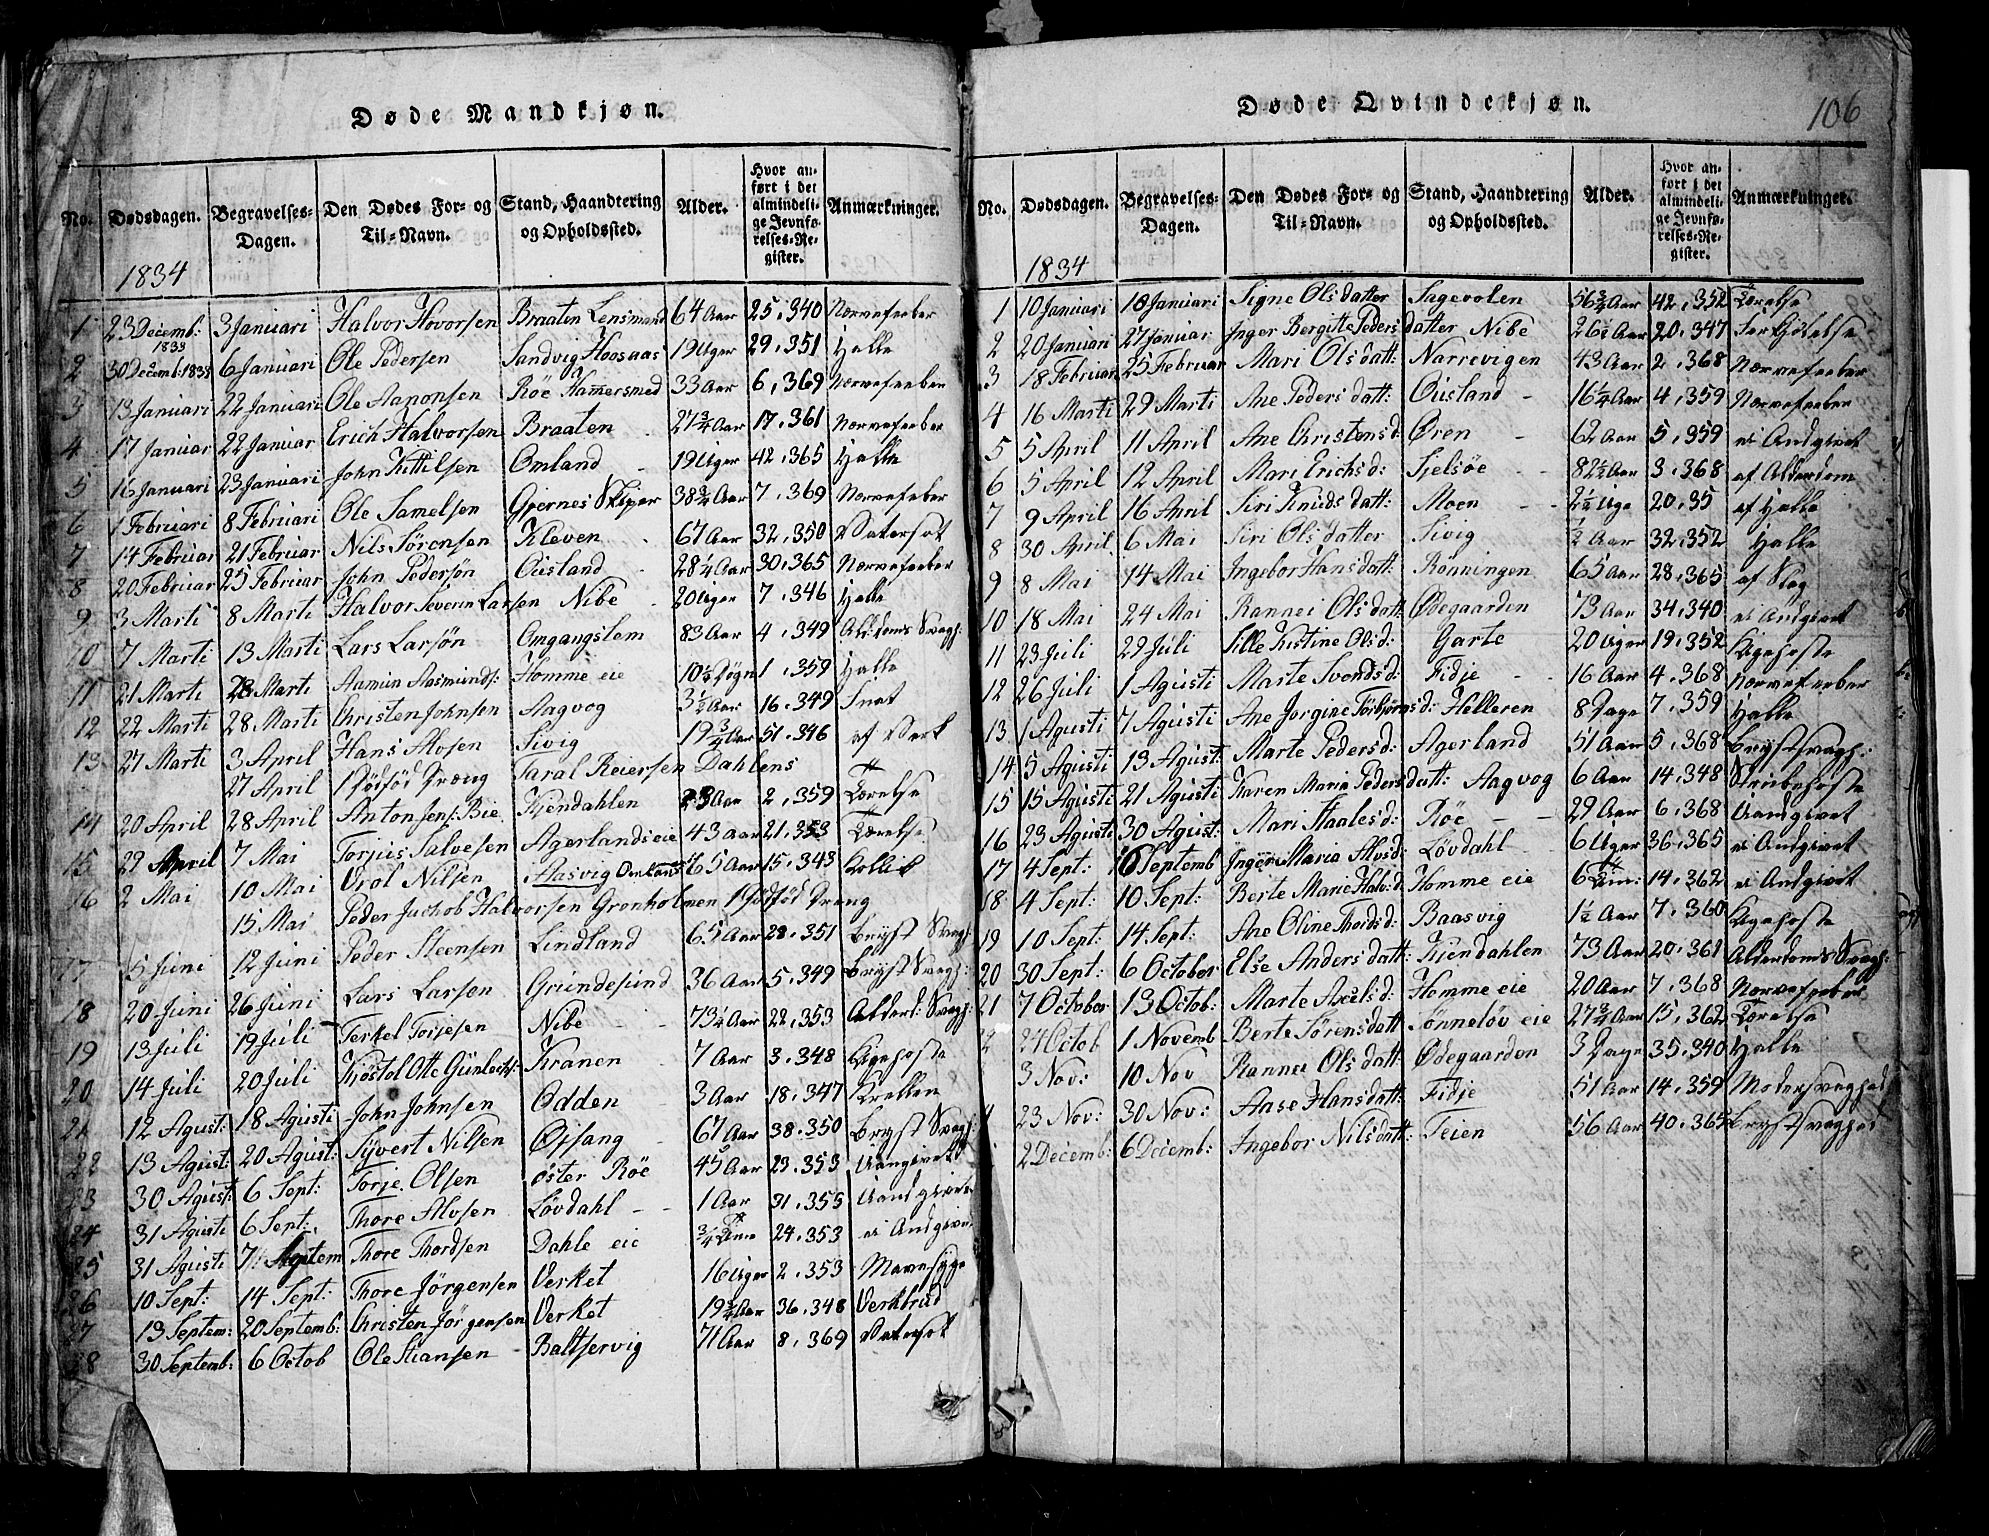 Døde Mandkjøn.
No. Dødsdagen. Begravelses-Dagen. Den Dødes For- og Til-Navn. Stand, Haandtering og Opholdssted. Alder. Hvor anført i det almindelige Jevnførelses-Register. Anmærkninger.
1834
1 23 Decemb: 1833 3 Januari Halvor Hovorsen Braaten Lensmand 64 Aar 25.340 Nervefeeber
2 30 Decemb: 1833 6 Januari Ole Pedersen Sandvig Hoosaas 19 Uger 29.351 Halle
3 13 Januari 22 Januari Ole Aanonsen Röe Hamersmed 33 Aar 6.369 Nervefeeber
4 17 Januar 22 Januar Erich Halvorsen Braaten 27 3/4 Aar 17.361 Nervefeeber
5 16 Januari 23 Januari John Kittilsen Omland 19 Uger 42.365 Halle
6 1 Februari 8 Februari Ole Samelsen Gjernes Skipper 38 3/4 Aar 7.369 Nervefeber
7 14 Februar 21 Februar Nils Sörensen Kleven 67 Aar 32.350 Vatersot
8 20 Februar 25 Februar John Pedersön Ousland 28 1/4 Aar 30.365 Nervefeeber
9 3 Marti 8 Marti Halvor Severin Larsen Nibe 20 Uger 7.346 Halle
10 7 Marti 13 Marti Lars Larsön Omgangslem 83 Aar 4.349 Alderdoms Svagh:
11 21 Marti 28 Marti Aamun Aasmunds: Homme eie 10 1/2 Døgn 1.359 Halle
12 22 Marti 28 Marti Christen Johnsen Aagvog 3 1/2 Aar 16.349
13 27 Marti 3 April Hans Alvsen Sivig 19 3/4 Aar 51.346 af Verk
27 April 1 Dödföd Dreng Taral Reiersen Dahlens
14 20 April 28 April Anton Jens: Bie Kjendahlen 23 Aar 2.359 Tærelse
15 29 April 7 Mai Torjus Salvesen Agerlands eie 43 Aar 21.353 Tærelse
16 2 Mai 10 Mai Orol Nilsen Aasvig Omland 65 Aar 15.343 Kollik
15 Mai Peder Jachob Halvorsen Grønholmen 1 Dödföd Dreng
17 5 Juni 12 Juni Peder Steensen Lindland 65 Aar 28.351 Bryst Svagh:
18 20 Juni 26 Juni Lars Larsen Grundesund 36 Aar 5.349 Bryst Svagh:
19 13 Juli 19 Juli Terkel Torjesen Nibe 73 1/4 Aar 22.353 Alderd: Svagh:
20 14 Juli 20 Juli Kjöstol Otte Gunlechs: Kranen 7 Aar 3.348 Kigehoste
21 12 Agust: 18 Agusti John Johnsen Odden 3 Aar 18.347
22 13 Agust: 20 Agust: Syvert Nilsen Ofsang 67 Aar 38.350 Bryst Svagh:
23 30 Agust: 6 Sept: Torje Olsen öster Röe 45 Aar 23.353 Uangivet
24 31 Agusti 6 Sept: Thore Alvsen Lövdahl 1 Aar 31.355 Uandgivet
25 31 Agusti 7 Septem Thore Thordsen Dahle eie 24.353 ei Andgivet
26 10 Sept: 14 Sept: Thore Jörgensen Verket 16 Uger 2.353 Mavesyge
27 13 Septem: 20 Septemb: Christen Jörgensen Verket 19 3/4 Aar 36.348 Verkbrud
28 30 Septemb: 6 Octob Ole Stiansen Baltservig 71 Aar 8.369 Vatersot
Døde Qvindekjøn.
106
No. Dødsdagen. Begravelses-Dagen. Den Dødes For- og Til-Navn. Stand, Haandtering og Opholdssted. Alder. Hvor anført i det almindelige Jevnførelses-Register. Anmærkninger.
1834
1 10 Januari 18 Januari Signe Olsdatter Sagevolen 56 3/4 Aar 42.352 Tærelse
2 20 Januari 27 Januar Inger Bergitte Pedersdatter Nibe 26 1/2 Aar 20.347
3 18 Februar 25 Februar Mari Olsdatt: Narrevigen 43 Aar 2.368 Nervefeeber
4 16 Marti 29 Marti Ane Pedersdatt: Ousland 16 1/4 Aar 4.359 Nervefeeber
5 5 April 11 April Ane Christensd Øren 62 Aar 5.359 ei Andgivet
6 5 April 12 April Mari Erichsd: Sjelsöe 82 1/2 Aar 3.368 af Alderdom
7 9 April 16 April Siri Knudsdatt: Moen 2 1/2 Uge 20.35 af Halle
8 30 April 6 Mai Siri Olsdatter Sivig 1/2 Aar 32.352 Halle
9 8 Mai 14 Mai Ingebor Hansdatt: Rönningen 65 Aar 28.365 af Slag
10 18 Mai 24 Mai Rannei Olsdatt: Ødegaarden 73 Aar 34.340 ei Andgivet
11 23 Juli 29 Juli Sille Kistine Olsd: Garte 20 Uger 19.352 Kigehoste
12 26 Juli 1 Agusti Marte Svendsd: Fidje 16 Aar 4.368 Nervefeeber
13 1 Agusti 7 Agusti Ane Jorgine Torbjörnsd: Helleren 8 Dage 7.359 Halle
14 5 Agusti 13 Agust: Marte Pedersd: Agerland 51 Aar 5.368 Brystsvagh:
15 15 Agusti 21 Agusti Karen Maria Pedersdatt: Aagvog 6 Aar 14.348 Strubehoste
16 23 Agusti 30 Agust: Mari Staalesd: Röe 29 Aar 6.368 Uandgivet
17 4 Sept: 10 Septemb Inger Maria Alvsd: Lövdahl 6 Uger 36.365 ei Andgivet
18 4 Sept: 10 Sept: Berte Marie Halv:d Homme eie 6 14.362 ei Andgivet
19 10 Sept: 14 Sept: Ane Oline Thordsd: Baasvig 1 1/2 Aar 7.360 Kigehoste
20 30 Sept: 6 October Else Andersdatt: Kjendahlen 73 Aar 20.361 Alderdoms Svagh:
21 7 October 13 Octob: Marte Axelsd: Homme eie 20 Aar 7.368 Nervefeeber
2 24 Octob 1 Novemb Berte Sörensdatt Sönnelöv eie 27 3/4 Aar 15.362 Tærelse
3 Nov: 10 Nov Rannei Olsdatt: Ødegaarden 3 Dage 35.340 Halle
23 Nov: 30 Nov: Aase Hansdatt: Fidje 51 Aar 14.359 Modersvaghed
2 Decemb: 6 Decemb: Ingebor Nilsdatt: Teien 56 Aar 40.365 Brystsvaghed